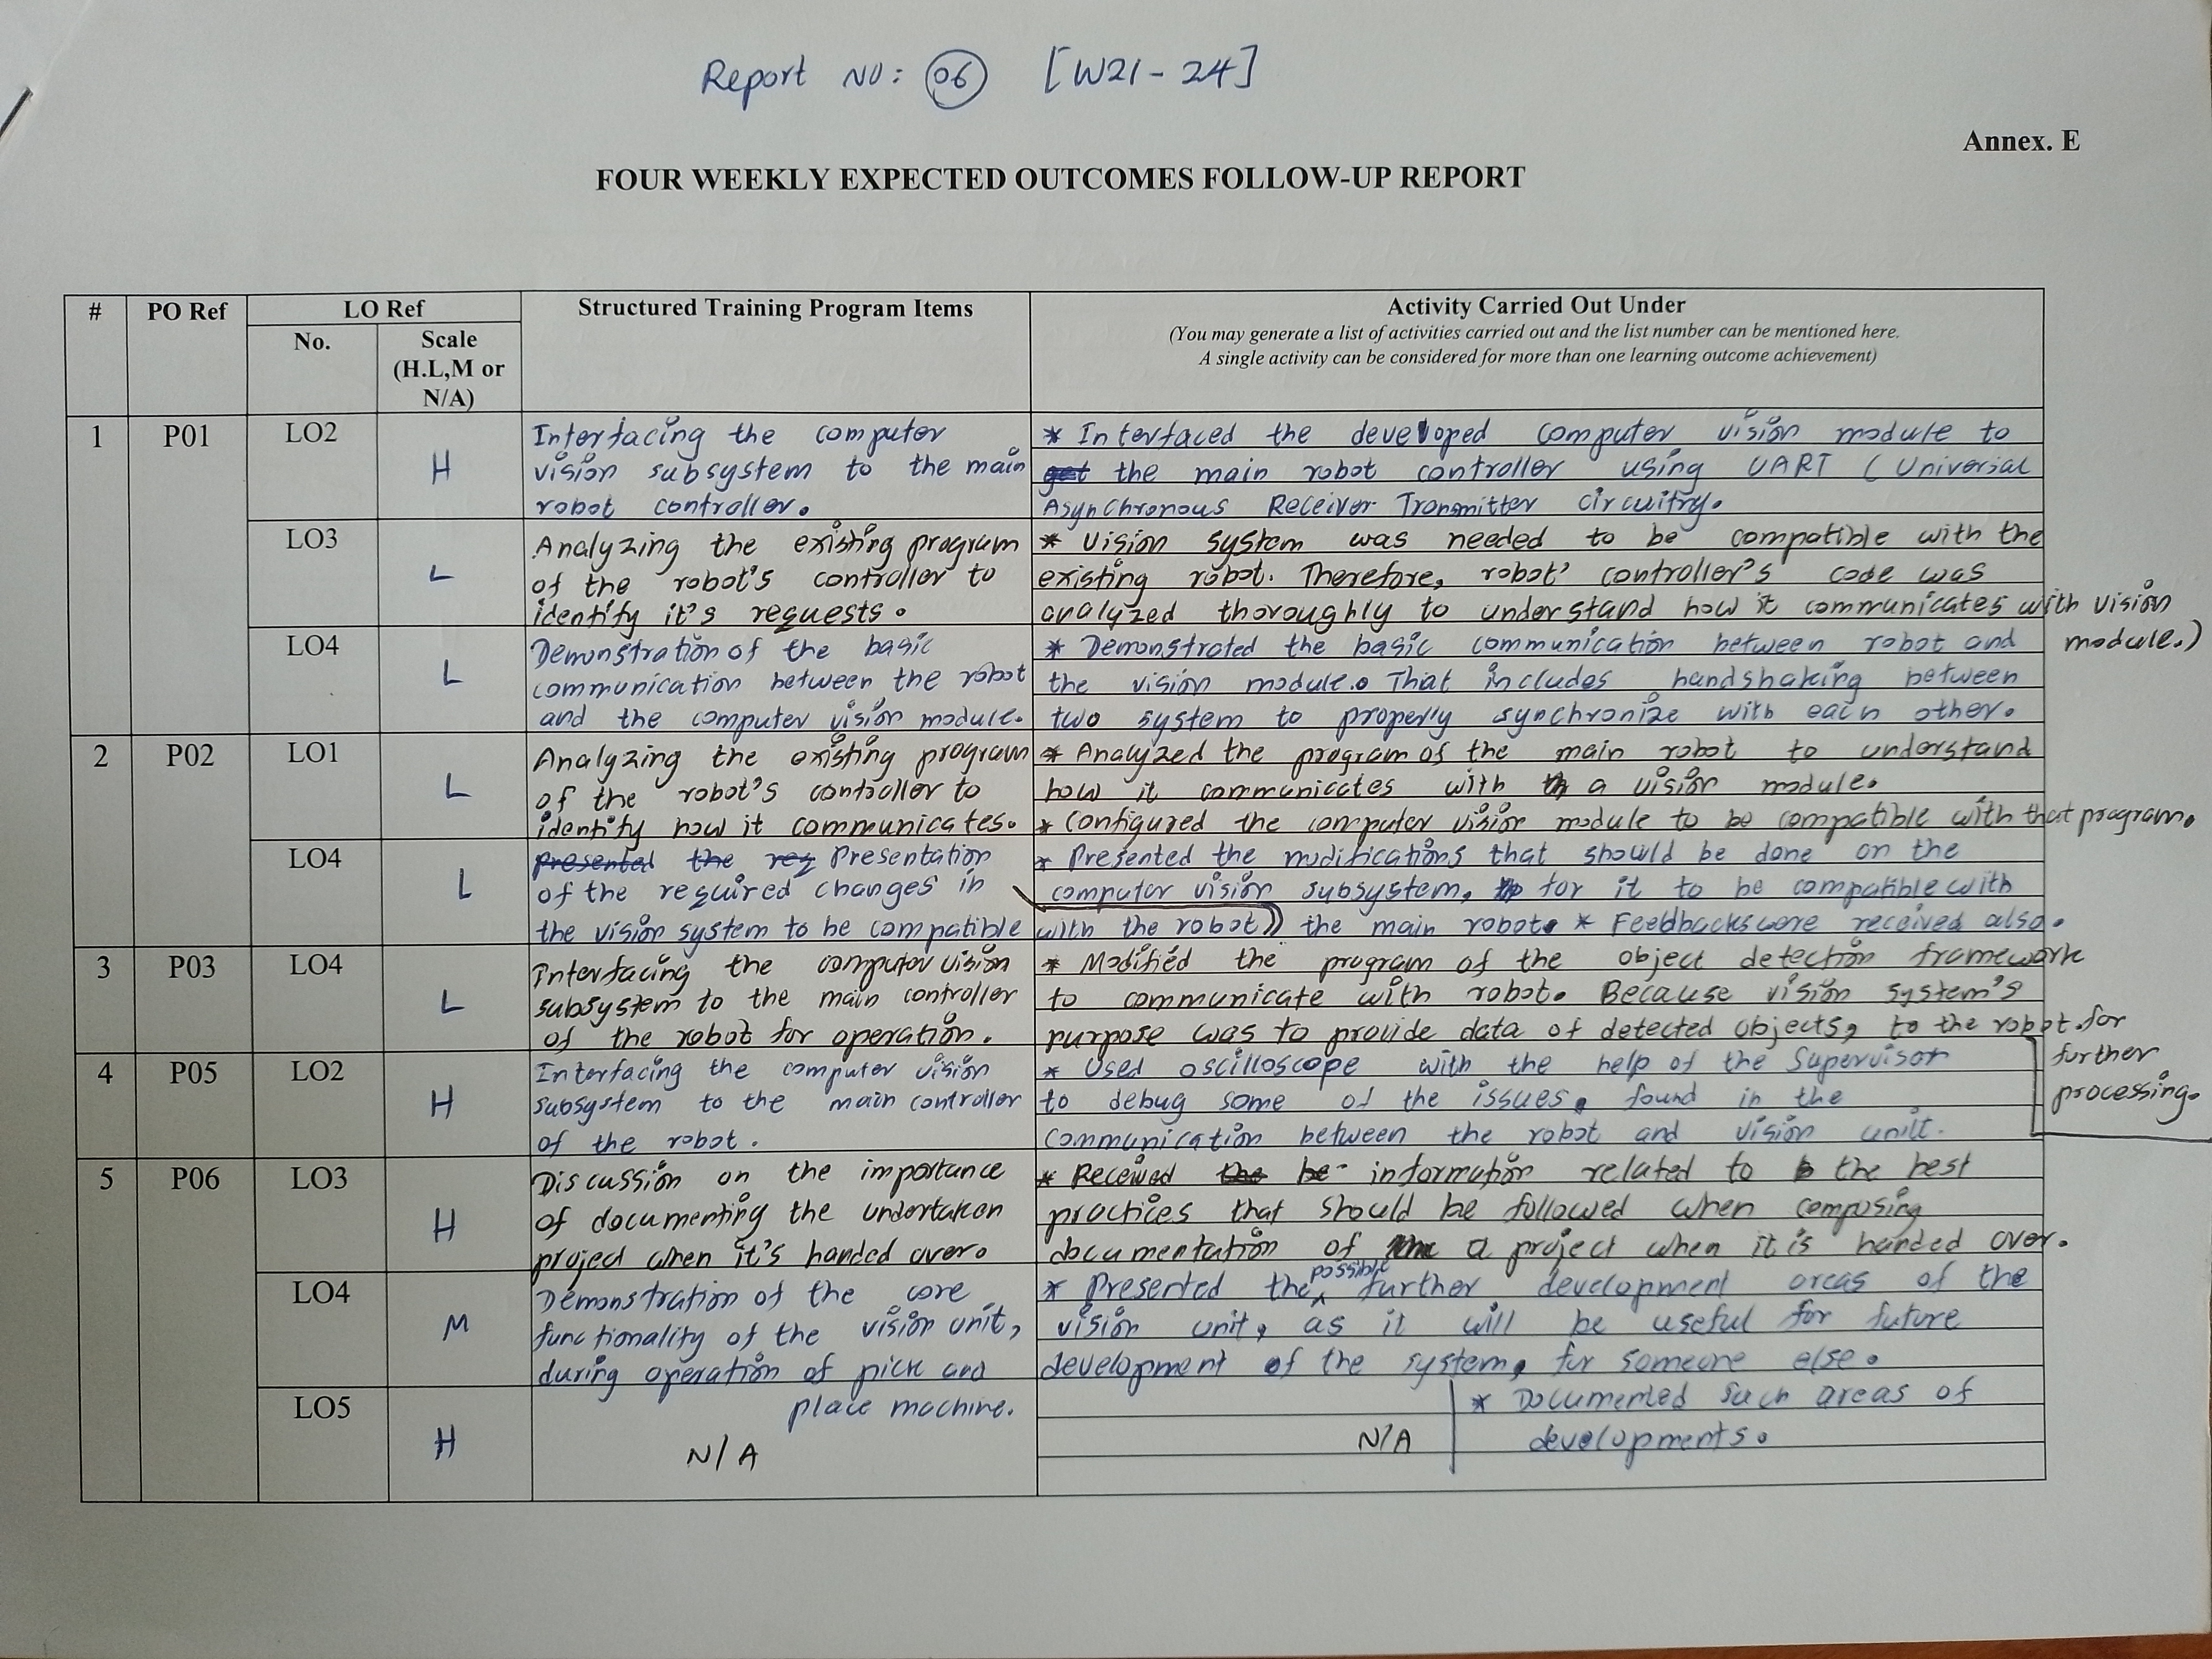 Report NO: 06 [W21 - 24]
Annex. E
FOUR WEEKLY EXPECTED OUTCOMES FOLLOW-UP REPORT
# PO Ref LO Ref Structured Training Program Items Activity Carried Out Under
No. Scale (H.L,M or N/A)
(You may generate a list of activities carried out and the list number can be mentioned here.
A single activity can be considered for more than one learning outcome achievement)
1 P01 LO2 H
Interfacing the computer
vision subsystem to the main
robot controller.
* Interfaced the developed computer vision module to
the main robot controller using UART (Universal
Asynchronous Receiver Transmitter circuitry.
LO3 L
Analyzing the existing program
of the robot's controller to
identify it's requests.
* Vision system was needed to be compatible with the
existing robot. Therefore, robot controller's code was
analyzed thoroughly to understand how it communicates with vision
module.)
LO4 L
Demonstration of the basic
communication between the robot
and the computer vision module.
* Demonstrated the basic communication between robot and
the vision module. That includes handshaking between
two system to properly synchronize with each other.
2 P02 LO1 L
Analyzing the existing program
of the robot's controller to
identify how it communicates.
* Analyzed the program of the main robot to understand
how it communicates with a vision module.
* Configured the computer vision module to be compatible with that program.
LO4 L
presented the req Presentation
of the required changes in
the vision system to be compatible
with the robot
* Presented the modifications that should be done on the
computer vision subsystem, for it to be compatible with
the main robot. * Feedbacks were received also.
3 P03 LO4 L
Interfacing the computer vision
subsystem to the main controller
of the robot for operation.
* Modified the program of the object detection framework
to communicate with robot. Because vision system's
purpose was to provide data of detected objects, to the robot for
further
processing.
4 P05 LO2 H
Interfacing the computer vision
subsystem to the main controller
of the robot.
* Used oscilloscope with the help of the supervisor
to debug some of the issues found in the
communication between the robot and vision unit.
5 P06 LO3 H
Discussion on the importance
of documenting the undertaken
project when it's handed over.
* Received the be information related to the best
practices that should be followed when composing
documentation of a project when it is handed over.
LO4 M
Demonstration of the core
functionality of the vision unit,
during operation of pick and
place machine.
* Presented the possible further development areas of the
vision unit, as it will be useful for future
development of the system, for someone else.
* Documented such areas of
developments.
LO5 H
N/A
N/A